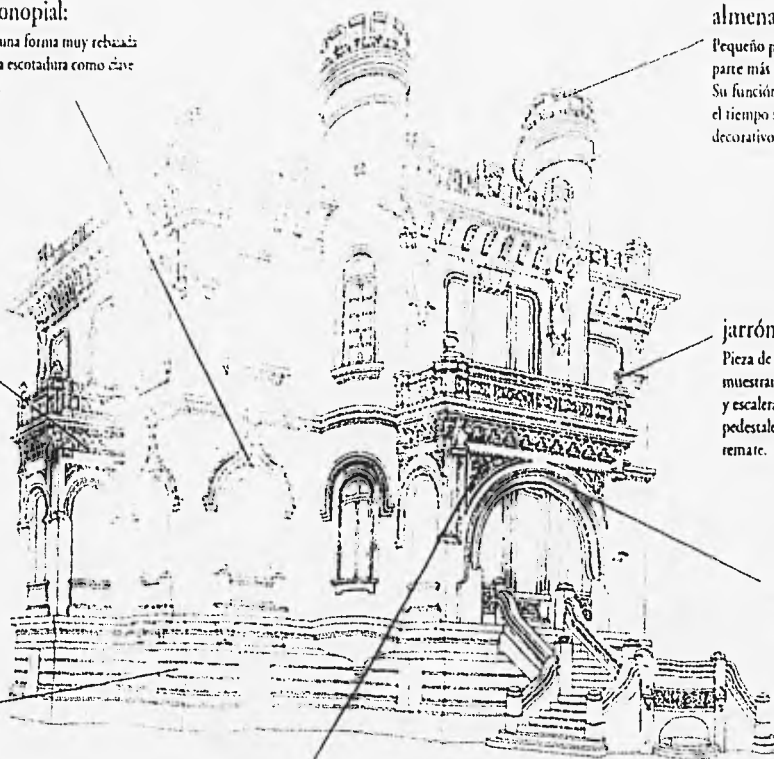 onopial:
una forma muy rebajada
a escotadura como clave
almena
Pequeño p
parte más
Su función
el tiempo
decorativo
jarrón
Pieza de
muestran
y escalera
pedestale
remate.